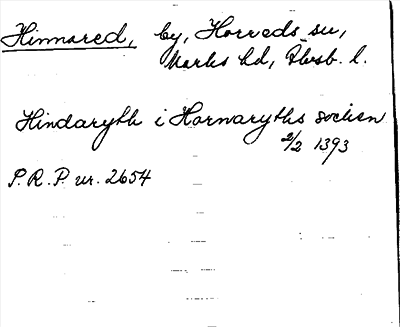 Hinnared, by, Horreds sn,
Marks hd, Älvsb. l.
Hindaryth i Hornaryths sochen
2/2 1393
P. R. P. nr. 2654